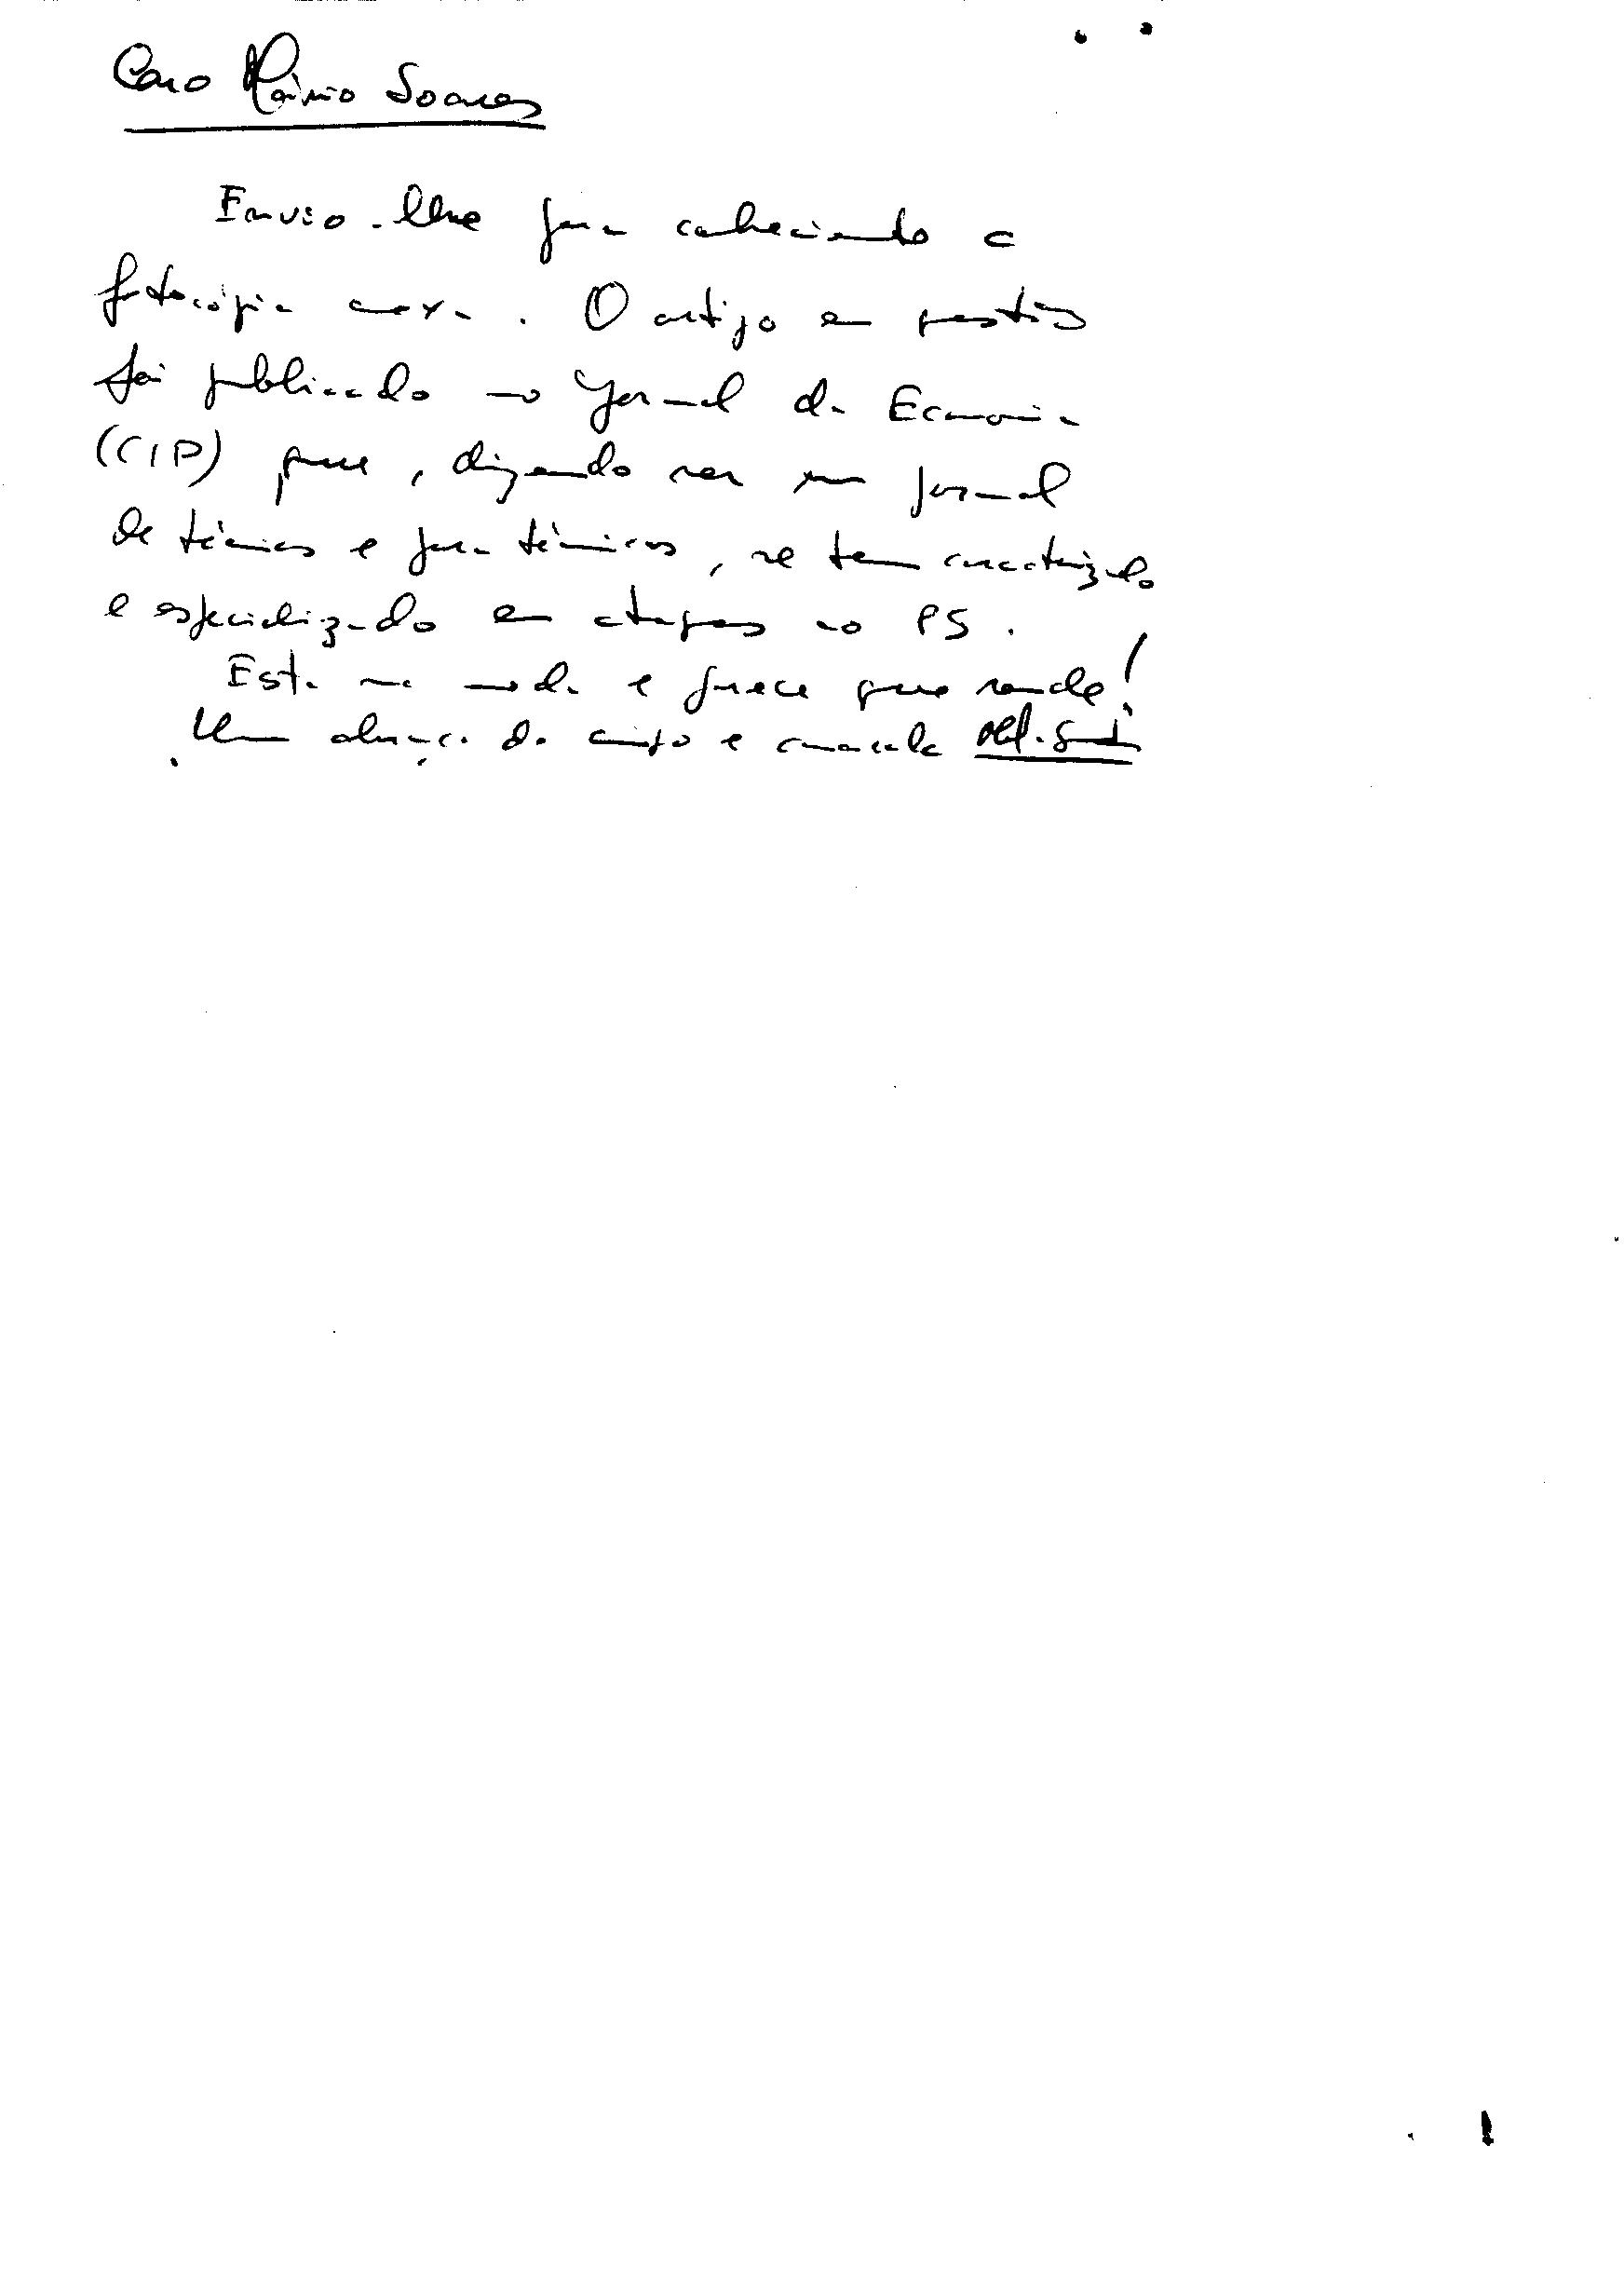 Caro Mário Soares
Envio-lhe para conhecimento a
fotocópia anexa. O artigo em questão
foi publicado no Jornal da Economia
(CIP) que, dizendo ser um jornal
de técnicos e para técnicos, se tem caracterizado
e especializado em ataques ao PS.
Está na moda e parece que rende!
Um abraço do amigo e camarada